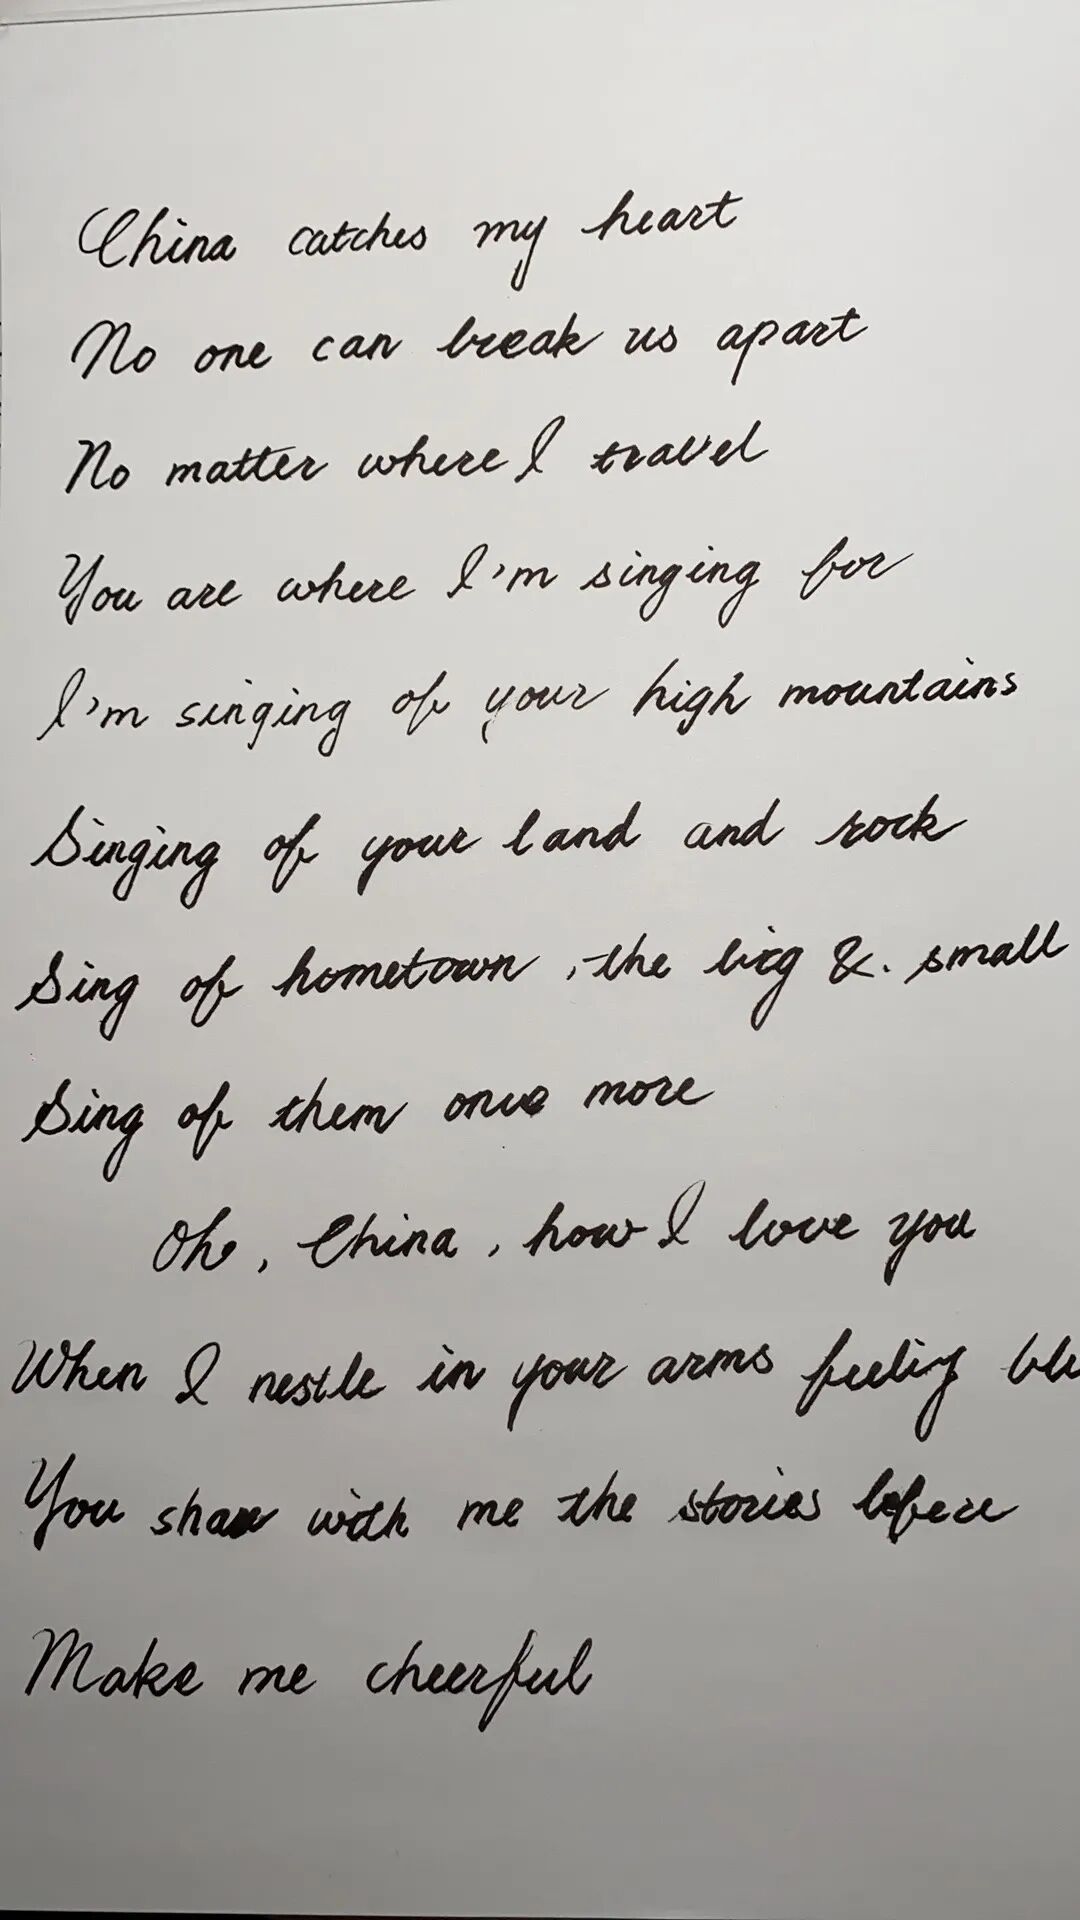 China catches my heart
No one can break us apart
No matter where I travel
You are where I'm singing for
I'm singing of your high mountains
Singing of your land and rock
Sing of hometown, the big &. small
Sing of them once more
Oh, China, how I love you
When I nestle in your arms feeling
You share with me the stories before
Make me cheerful